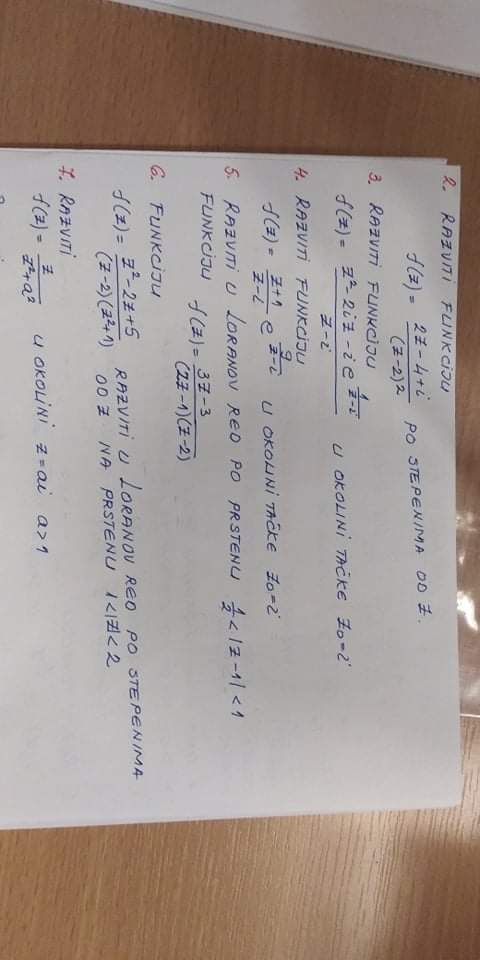 2. RAZVITI FUNKCIJU
f(z) = (2z-4+i)/(z-2)² PO STEPENIMA OD z.
3. RAZVITI FUNKCIJU
f(z) = (z²-2iz-i e^(1/(z-i)))/(z-i) U OKOLINI TAČKE z₀=i
4. RAZVITI FUNKCIJU
f(z) = (z+1)/(z-i) e^(9/(z-i)) U OKOLINI TAČKE z₀=i
5. RAZVITI U LORANOV RED PO PRSTENU 1/2<|z-1|<1
FUNKCIJU f(z) = (3z-3)/((2z-1)(z-2))
6. FUNKCIJU
f(z) = (z²-2z+5)/((z-2)(z²+1)) RAZVITI U LORANOV RED PO STEPENIMA
OD z NA PRSTENU 1<|z|<2
7. RAZVITI
f(z) = z/(z²+a²) U OKOLINI z=ai a>1